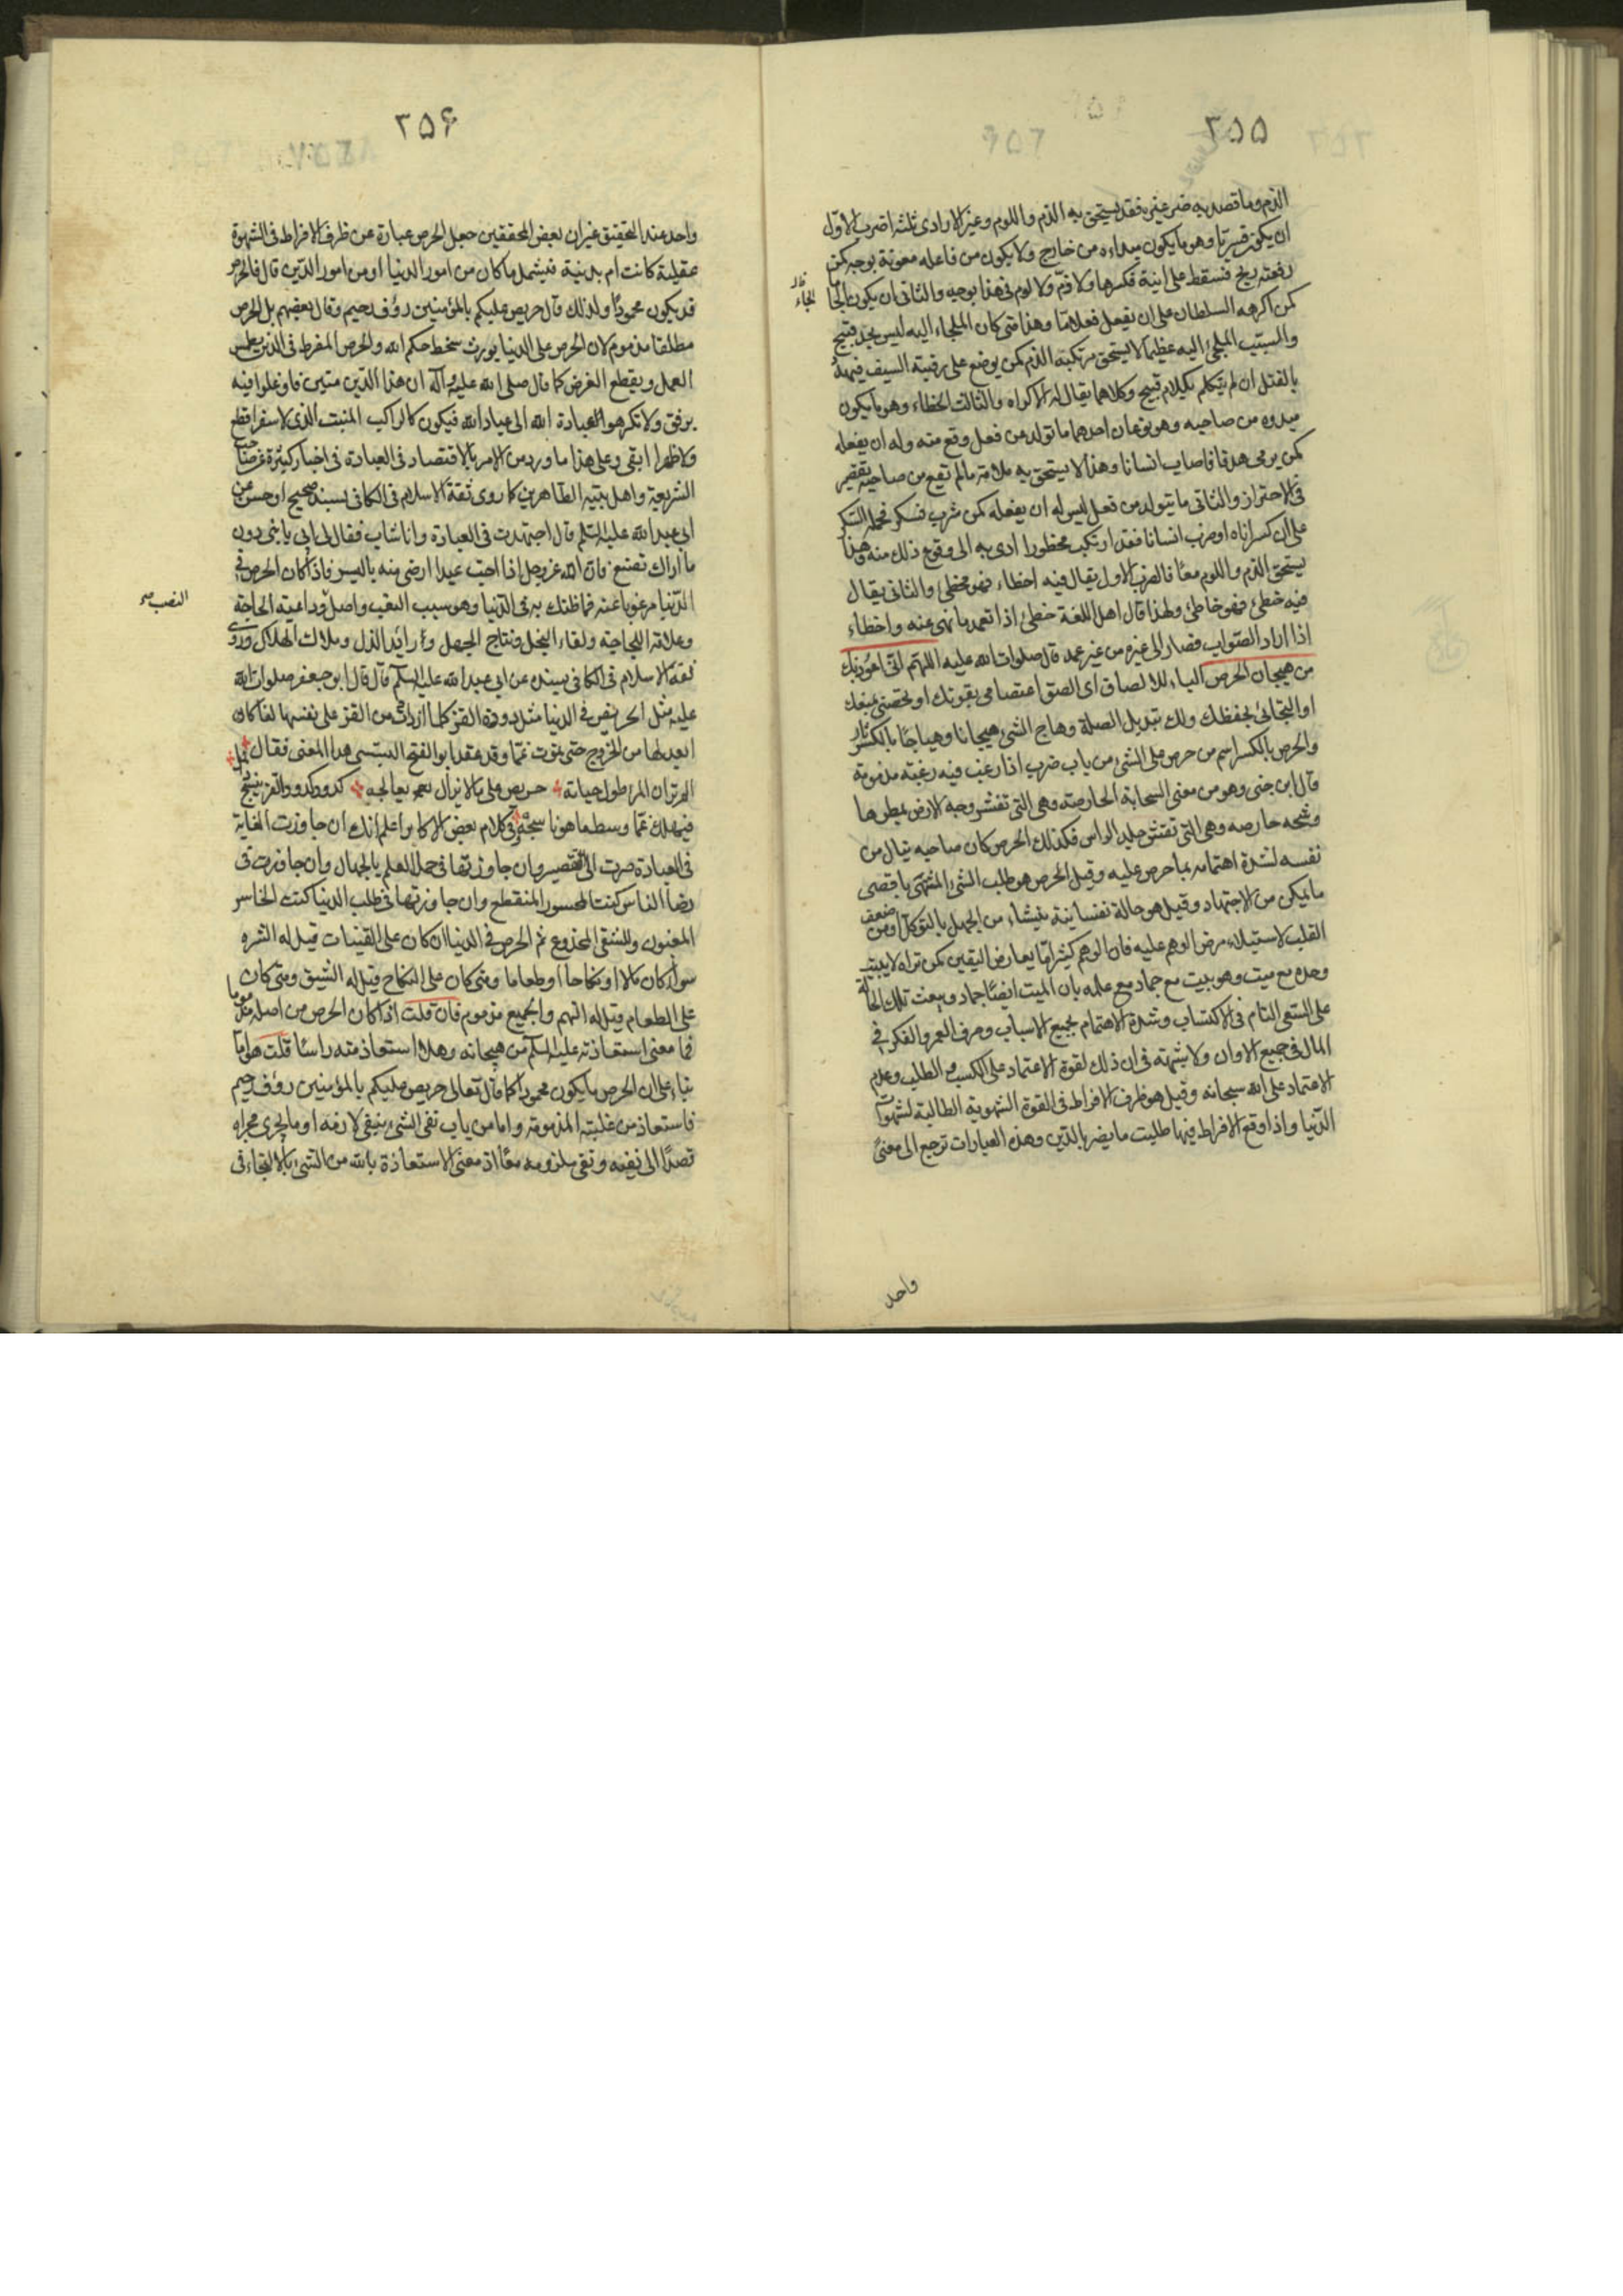 ٢٥٥
الذم وما قصد به ضر غيره فقد يستحق به الذم واللوم وغير الارادى ثلثة اضرب الاوّل
ان يكون قسريّا وهو ما يكون مبداءه من خارج ولا يكون من فاعله معونة بوجه كمن
دفعته ريح فسقط على انية فكسرها ولا ذمّ ولا لوم فى هذا بوجه والثانى ان يكون
الجاء
كمن اكرهه السلطان على ان يفعل فعلا مّا وهذا متى كان الملجاء اليه ليس بجد قبيح
والسبب الملجئ اليه عظيما لا يستحق مرتكبه الذم كمن يوضع على رقبته السيف فيهدد
بالقتل ان لم يتكلم بكلام قبيح وكلاهما يقال له الاكراه والثالث الخطاء وهو ما يكون
مبدوه من صاحبه وهو نوعان احدهما ما تولد من فعل وقع منه وله ان يفعله
كمن يرمى هدفا فاصاب انسانا وهذا لا يستحق به ملامة ما لم تقع من صاحبه تقصير
فى الاحتراز والثانى ما يتولد من فعل ليس له ان يفعله كمن شرب فسكر فحمله السكر
على ان كسر اناه او ضرب انسانا فقد ارتكب محظورا ادى به الى وقوع ذلك منه وهذا
يستحق الذم واللوم معًا فالضرب الاول يقال فيه اخطاء فهو مخطئ والثانى يقال
فيه خطئ فهو خاطئ ولهذا قال اهل اللغة خطئ اذا تعمد ما نهى عنه واخطاء
اذا اراد الصّواب فصار الى غيره من غير عمد قال صلوات الله عليه اللهم انّى اعوذ بك
من هيجان الحرص الباء للالصاق اى الصق اعتصامى بقوتك او تحصنى بمنعك
او التجائى بحفظك ولك تبديل الصلة وهاج الشئ هيجانا وهياجًا بالكسر ثار
والحرص بالكسر اسم من حرص على الشئ من باب ضرب اذا رغب فيه رغبة مذمومة
قال ابن جنى وهو من معنى السحابة الحارصة وهى التى تقشر وجه الارض بمطرها
وشجه حارصه وهى التى تقشر جلد الراس فكذلك الحرص كان صاحبه ينال من
نفسه لشدة اهتمامه بما حرص عليه وقيل الحرص هو طلب الشئ المشتهى باقصى
ما يمكن من الاجتهاد وقيل هو حالة نفسانية ينشاء من الجهل بالتوكل او من ضعف
القلب لاستيلاء مرض الوهم عليه فان الوهم كثيرا مّا يعارض اليقين كمن تراه لا يبيت
وحده مع ميت وهو يبيت مع جماد مع علمه بان الميت ايضًا جماد ويبعث تلك الحالة
على السّعى التام فى الاكتساب وشدة الاهتمام بجميع الاسباب وصرف العمر والفكر فى
المال فى جميع الاوان ولا شبهة فى ان ذلك لقوة الاعتماد على الكسب والطلب وعدم
الاعتماد على الله سبحانه وقيل هو طرف الافراط فى القوة الشهوية الطالبة لشهوات
الدّنيا واذا وقع الافراط فيها طلبت ما يضر بالدّين وهذه العبارات ترجع الى معنىً
واحد
٢٥۶
واحد عند التحقيق غير ان بعض المحققين جعل الحرص عبارة عن طرف الافراط فى الشهوة
عقلية كانت ام بدنية فيشمل ما كان من امور الدنيا او من امور الدّين قال فالحرص
قد يكون محمودًا ولذلك قال حريص عليكم بالمؤمنين رؤف رحيم وقال بعضهم بل الحرص
مطلقا مذموم لان الحرص على الدنيا يورث سخط حكم الله والحرص المفرط فى الدّين
العمل ويقطع الغرض كما قال صلى الله عليه وآله ان هذا الدّين متين فاوغلوا فيه
برفق ولا تكرهوا عبادة الله الى عباد الله فيكون كالراكب المنبت الذى لا سفرا قطع
ولا ظهرا ابقى وعلى هذا ما ورد من الامر بالاقتصاد فى العبادة فى اخبار كثيرة عن صاحب
الشريعة واهل بيته الطّاهرين كما روى ثقة الاسلام فى الكافى بسند صحيح او حسن عن
ابى عبد الله عليه السّلم قال اجتهدت فى العبادة وانا شاب فقال لى ابى يا بنى دون
ما اراك تصنع فان الله عز وجل اذا احب عبدا ارضى منه باليسير فاذا كان الحرص فى
الدّين مرغوبا عنه فما ظنك به فى الدّنيا وهو سبب التعب واصل وداعية الحاجة
النصب صح
وعلامة اللجاجة ولقاء البخل ونتاج الجهل و رائد الذل وملاك الهلاك وروى
ثقة الاسلام فى الكافى بسنده عن ابى عبد الله عليه السّلم قال قال ابو جعفر صلوات الله
عليه مثل الحريص فى الدنيا مثل دودة القز كلما ازدادت من القز على نفسها لفا كان
ابعد لها من الخروج حتى تموت غمّا وقد عقد ابو الفتح البستى هذا المعنى فقال
الم تر ان المرء طول حياته حريص على ما لا يزال يعالجه كدود كدود القز ينسج
فيهلك غمّا وسط ما هو ناسجه وفى كلام بعض الاكابر اعلم انك ان جاوزت الغاية
فى العبادة صرت الى التقصير وان جاوزتها فى حمل العلم بالجهال وان جاوزت فى
رضا الناس كنت المحسور المنقطع وان جاوزتها فى طلب الدنيا كنت الخاسر
المغبون والشقى المخدوع ثم الحرص فى الدنيا ان كان على القينات قيل له الشره
سواء كان مالا او نكاحا او طعاما ومتى كان على النكاح قيل له الشبق ومتى كان
على الطعام قيل له النهم والجميع مذموم فان قلت اذا كان الحرص من اصله مذموما
فما معنى استعاذته عليه السّلم من هيجانه وهلا استعاذ منه راسًا قلت هو امّا
بناء على ان الحرص ما يكون محمودا كما قال تعالى حريص عليكم بالمؤمنين رؤف رحيم
فاستعاذ من غلبته المذمومة واما من باب نفى الشئ بنفى لازمه او ما يجرى مجراه
قصدًا الى نفيه ونفى ملزومه معًا اذ معنى الاستعاذة بالله من الشئ الالتجاء فى